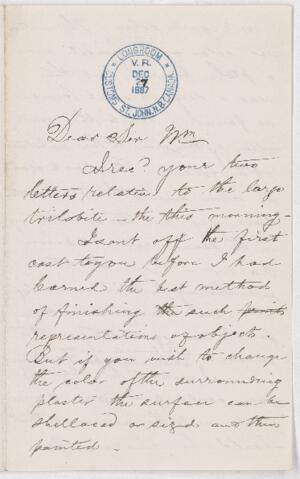 LONGROOM
V. R.
DEC
7
1887
CUSTOMS, ST. JOHN, N.B. CANADA.
Dear Sir Wm
I recd your two
letters relative to the large
trilobite — the this morning —
I sent off the first
cast to you before I had
learned the best method
of finishing the such
representations of objects.
But if you wish to change
the color of the surrounding
plaster the surface can be
shellaced or sized and then
painted —